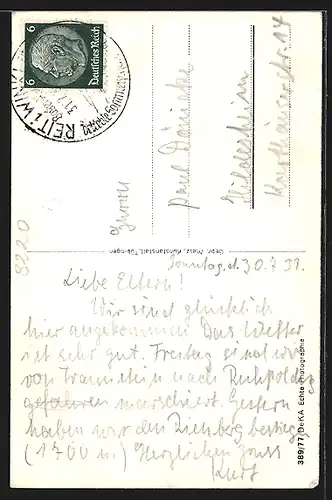 6
Deutsches Reich
6
REIT i. WINKL
Herrn
Paul
Hildesheim
str. 17
Gebr. Metz, Kunstanstalt, Tübingen
389/77 DeKA Echte Photographie
8220
Sonntag, d. 30.7.37.
Liebe Eltern!
Wir sind glücklich
hier angekommen. Das Wetter
ist sehr gut. Freitag sind wir
von Traunstein nach Ruhpolding
gefahren marschiert. Gestern
haben wir den bestiegen
(1700 m) Herzlichen Gruss
Kurt